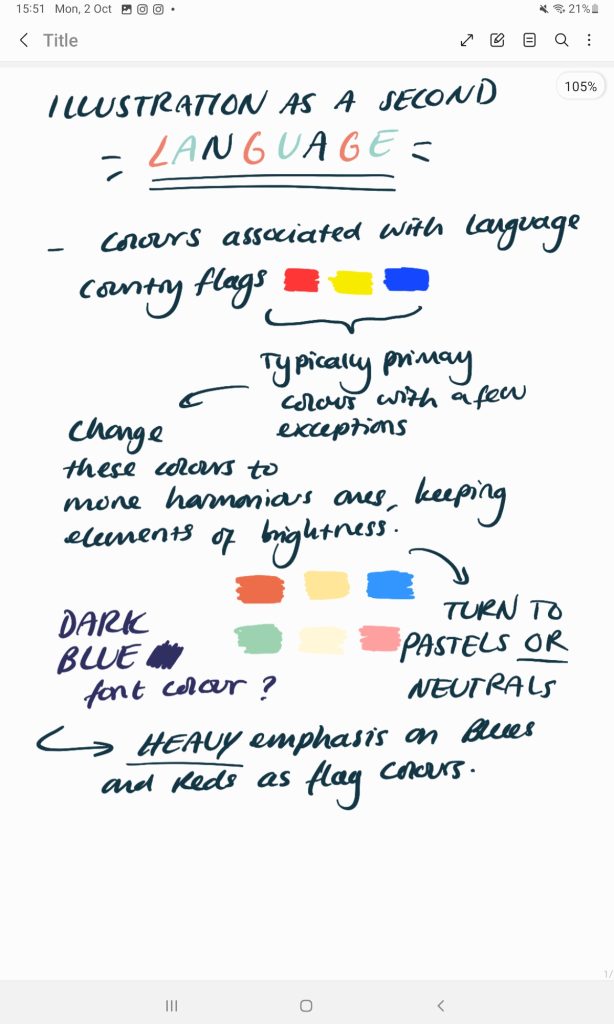 15:51 Mon, 2 Oct 21%
Title
105%
ILLUSTRATION AS A SECOND
LANGUAGE
- colours associated with language
country flags
Typically primary
colours with a few
exceptions
Change
these colours to
more harmonious ones, keeping
elements of brightness.
TURN TO
PASTELS OR
NEUTRALS
DARK
BLUE
font colour ?
HEAVY emphasis on Blues
and Reds as flag colours.
1/